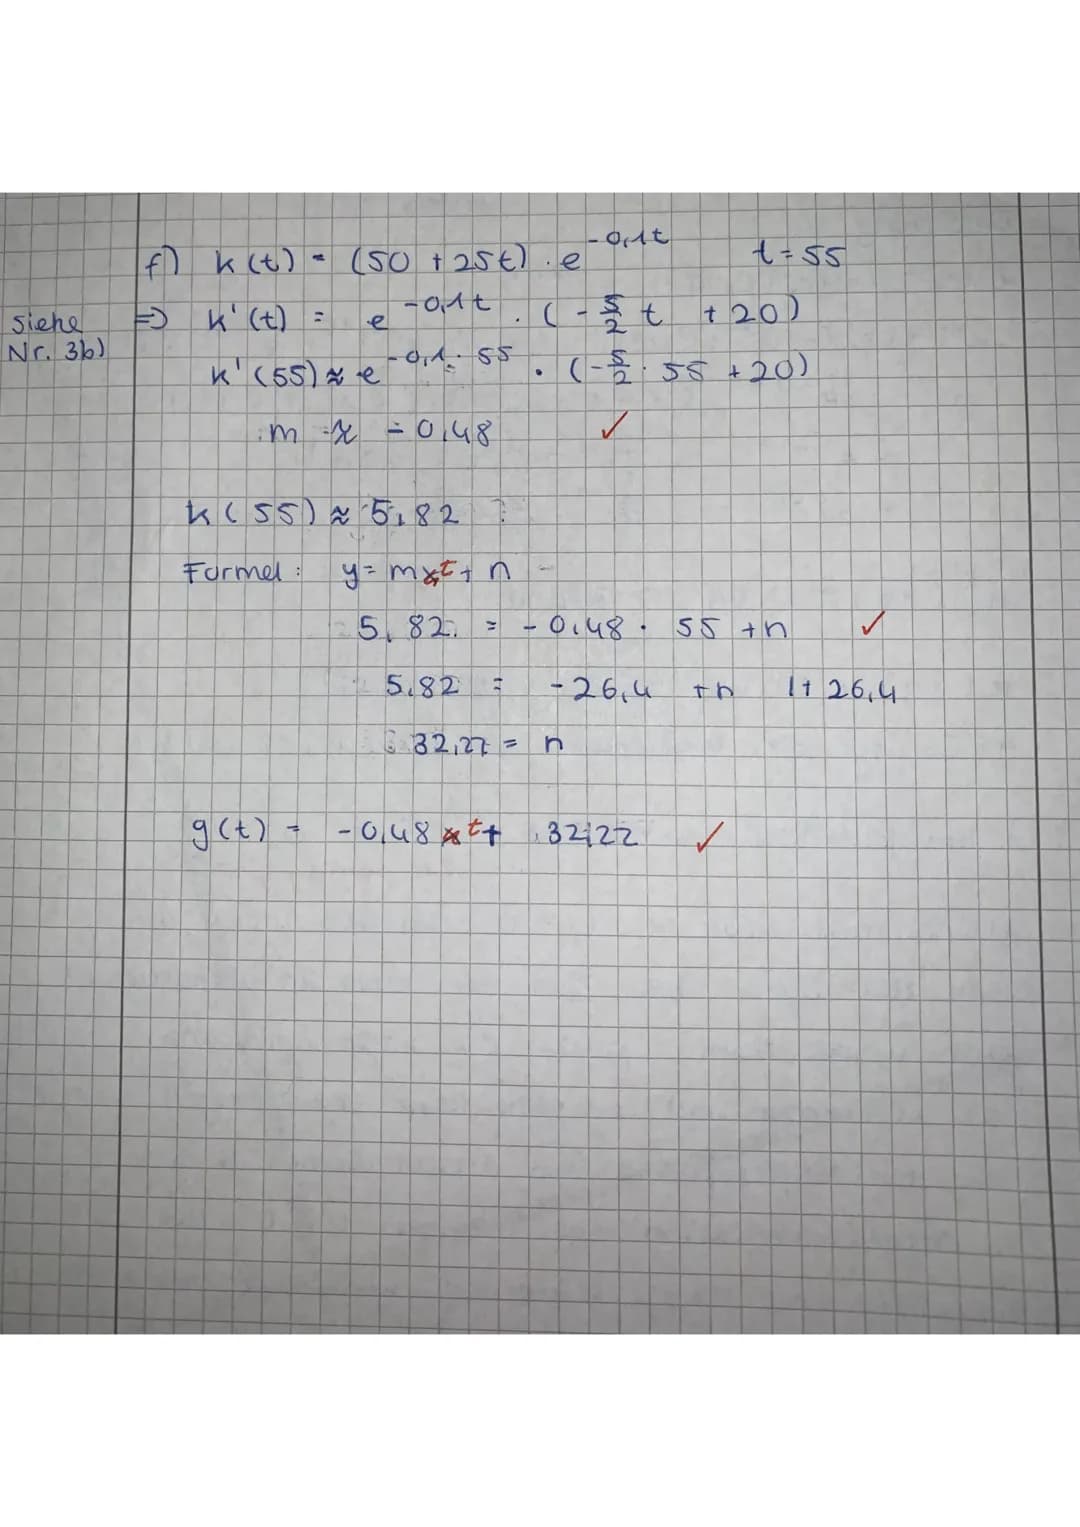 f) k(t) = (50 + 25t) · e^-0,1t t = 55
siehe Nr. 3b) => k'(t) = e^-0,1t · (-5/2 t + 20)
k'(55) ≈ e^-0,1·55 · (-5/2 · 55 + 20)
m ≈ -0,48 ✓
k(55) ≈ 5,82
Formel: y = mxt + n
5,82 = -0,48 · 55 + n ✓
5,82 = -26,4 + n |+ 26,4
32,22 = n
g(t) = -0,48 xt + 32,22 ✓